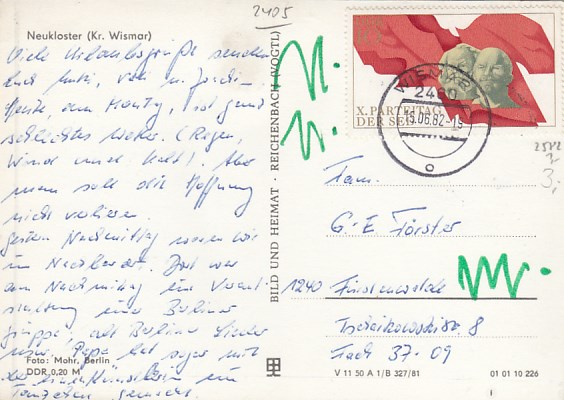 Neukloster (Kr. Wismar)
Viele Urlaubsgrüße senden
Euch
Heute, am Montag, ist ganz
schlechtes Wetter. (Regen,
Wind und kalt). Aber
man soll die Hoffnung
nicht verlieren.
Gestern Nachmittag waren wir
im Nachbarort. Dort war
am Nachmittag eine Veranstaltung
einer Berliner
Gruppe, alte Berliner Lieder
usw. Papa hat sogar mit
der
Tanzeten
Foto: Mohr, Berlin
DDR 0,20 M
BILD UND HEIMAT · REICHENBACH (VOGTL)
2405
X. PARTEITAG
DER SE
WISMAR
2400
15.06.82-15
2582
3,
Fam.
G-E Förster
1240 Fürstenwalde
Tschaikowskistr. 8
Fach 37-09
V 11 50 A 1/B 327/81
01 01 10 226